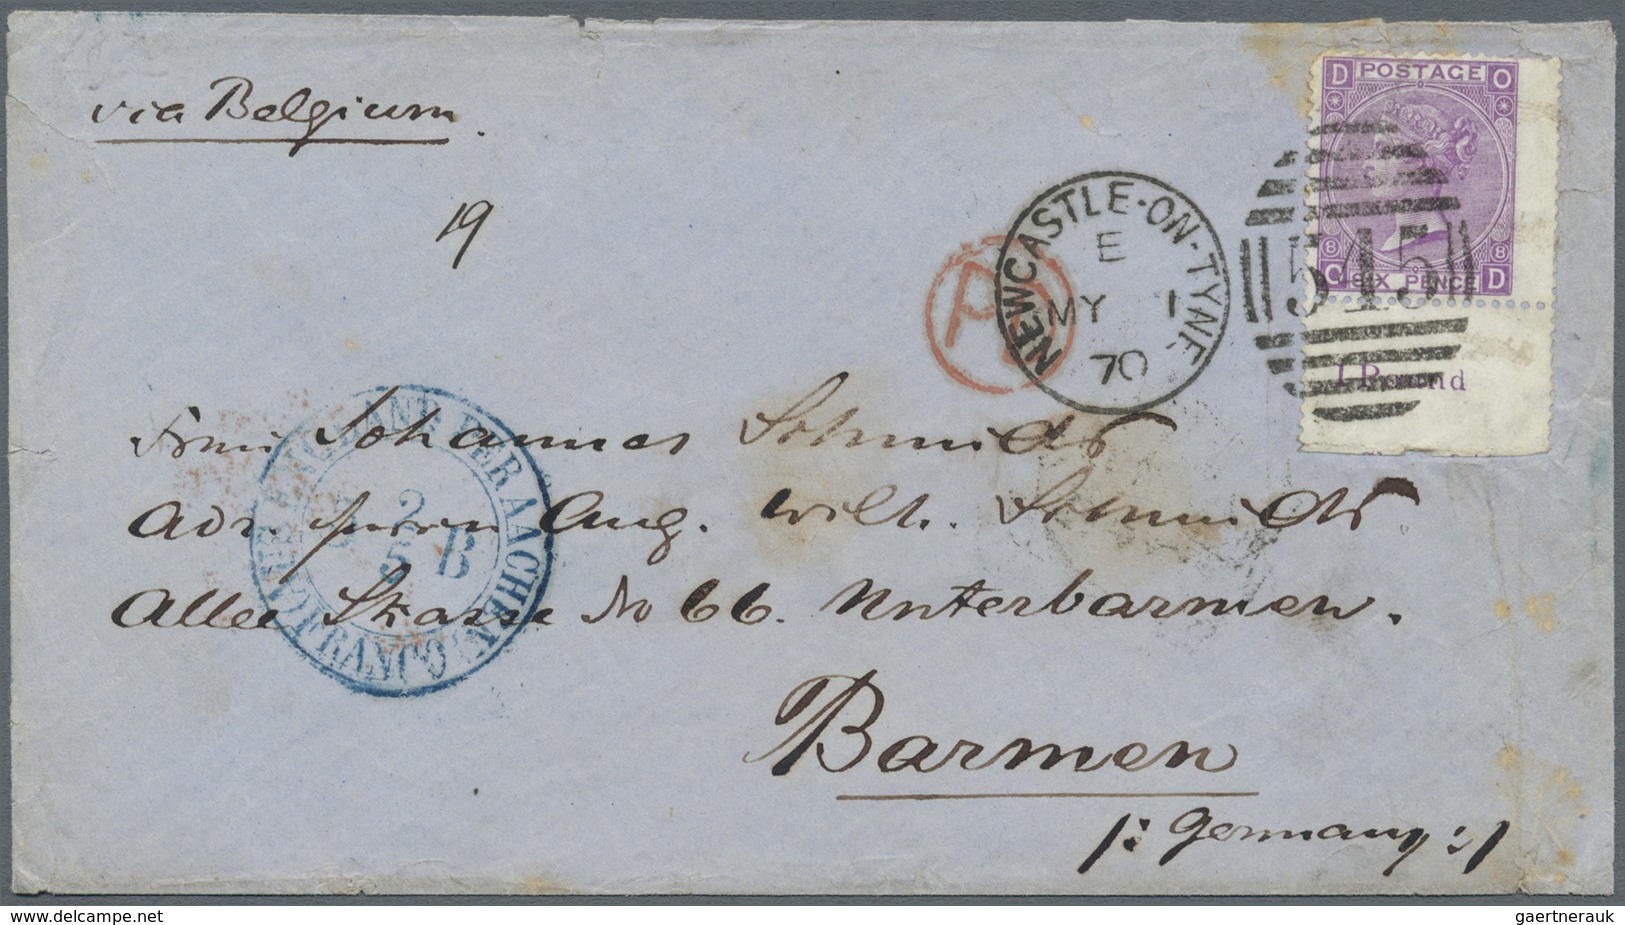 via Belgium.
19
D POSTAGE O
8 8
O SIX PENCE D
545
1 Pound
NEWCASTLE-ON-TYNE
E
MY 1
70
PD
Frau Johannes Schmidt
Adr. Herrn Aug. Wilh. Schmidt
Allee Strasse No 66. Unterbarmen.
Barmen
/: Germany :/
ENGLAND PER AACHEN
FRANCO
2
5 B
www.delcampe.net
gaertnerauk